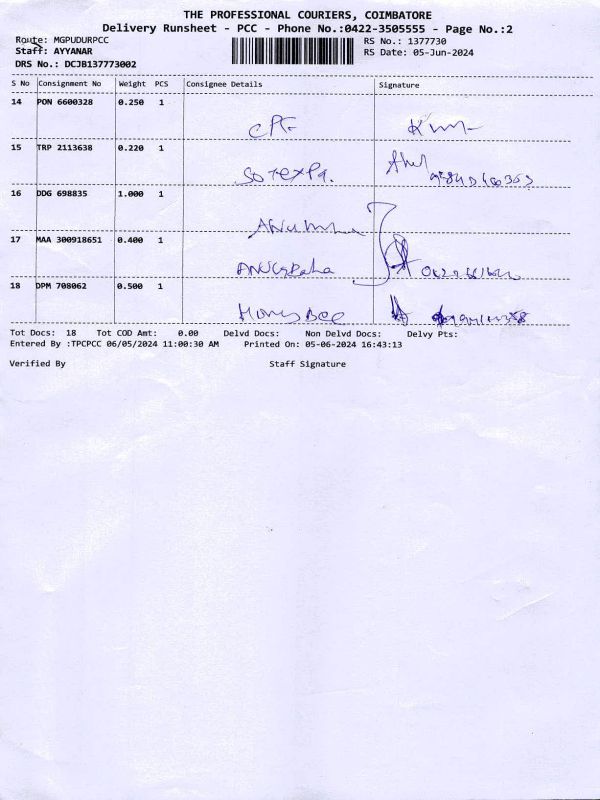 THE PROFESSIONAL COURIERS, COIMBATORE
Delivery Runsheet - PCC - Phone No.:0422-3505555 - Page No.:2
Route: MGPUDURPCC
RS No.: 1377730
Staff: AYYANAR
RS Date: 05-Jun-2024
DRS No.: DCJB137773002
S No Consignment No Weight PCS Consignee Details Signature
14 PON 6600328 0.250 1
15 TRP 2113638 0.220 1
16 DDG 698835 1.000 1
17 MAA 300918651 0.400 1
18 DPM 708062 0.500 1
Honey Bee
Tot Docs: 18 Tot COD Amt: 0.00 Delvd Docs: Non Delvd Docs: Delvy Pts:
Entered By :TPCPCC 06/05/2024 11:00:30 AM Printed On: 05-06-2024 16:43:13
Verified By Staff Signature